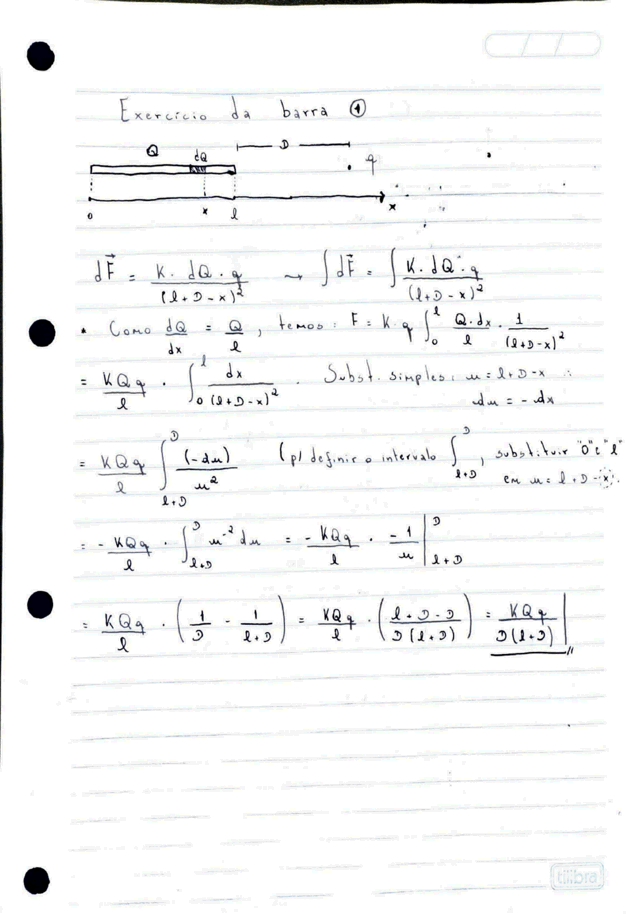 Exercício da barra ①
Q dQ D q
0 x l x
dF⃗ = K. dQ . q / (l+D-x)² → ∫dF⃗ = ∫ K. dQ . q / (l+D-x)²
• Como dQ/dx = Q/l , temos: F = K. q ∫₀ˡ Q.dx/l . 1/(l+D-x)²
= KQq/l . ∫₀ˡ dx/(l+D-x)² . Subst. simples: u = l+D-x ∴
du = -dx
= KQq/l ∫_{l+D}^{D} (-du)/u² (p/ definir o intervalo ∫_{l+D}^{D}, substituir "0" e "l"
em u = l+D-x).
= - KQq/l . ∫_{l+D}^{D} u⁻² du = - KQq/l . -1/u |_{l+D}^{D}
= KQq/l . (1/D - 1/(l+D)) = KQq/l . ((l+D-D)/(D(l+D))) = KQq/(D(l+D))
tilibra